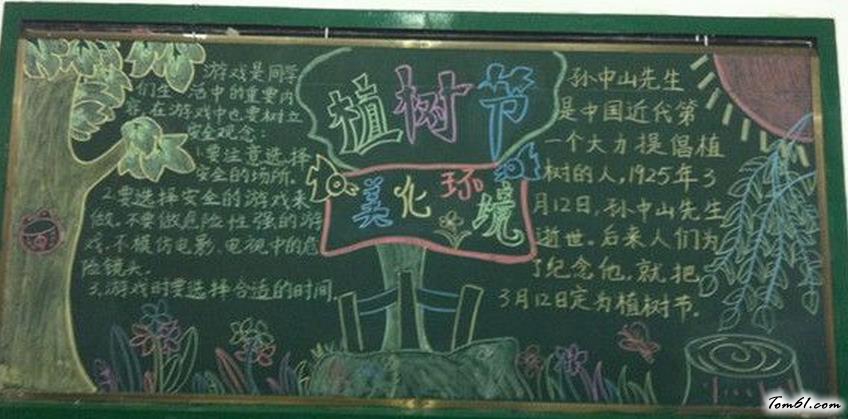 游戏是同学
们生活中的重要内
容,在游戏中也要树立
安全观念:
1.要注意选择
安全的场所。
2.要选择安全的游戏来
做,不要做危险性强的游
戏,不模仿电影、电视中的危
险镜头。
3.游戏时要选择合适的时间。
植树节
美化环境
孙中山先生
是中国近代第
一个大力提倡植
树的人,1925年3
月12日,孙中山先生
逝世。后来人们为
了纪念他,就把
3月12日定为植树节。
Tom61.com